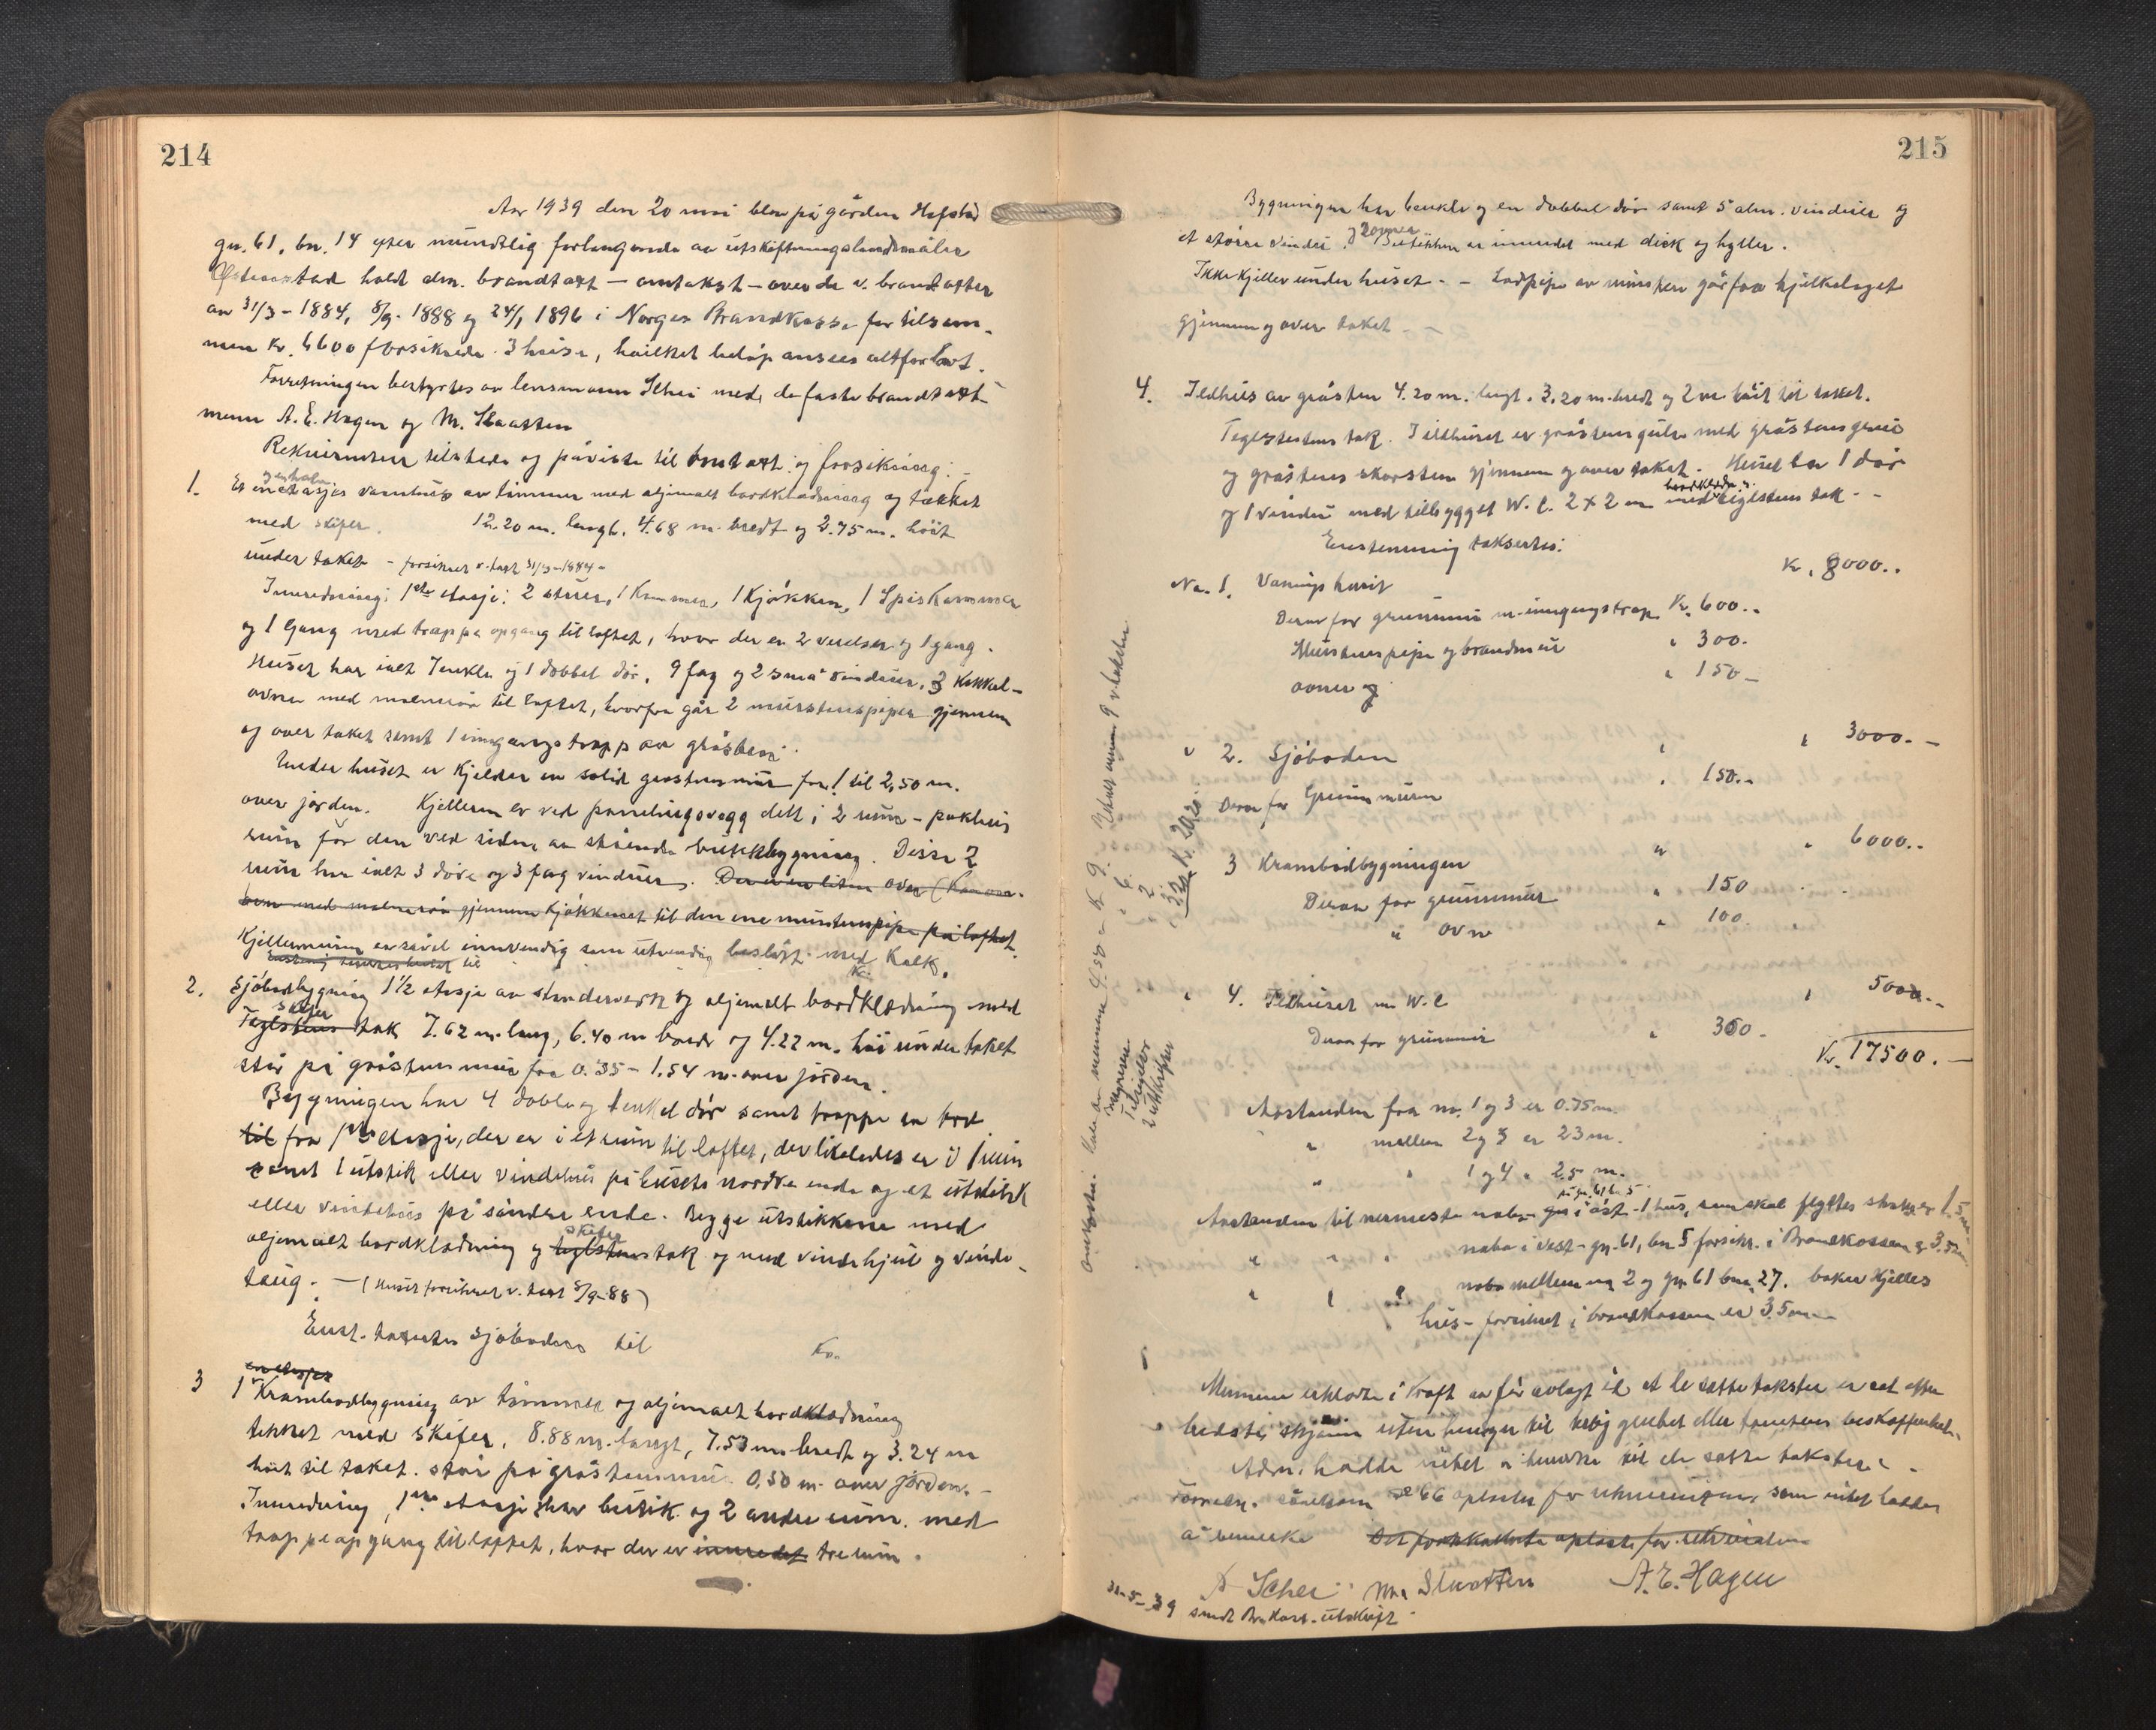 214
Aar 1939 den 20 mai blev på gården Hafstad
gn. 61, bn. 14 efter mundtlig forlangende av utskiftningslandmåler
holdt alm. brandtakst - omtakst - over de v. brandtakster
av 31/3 - 1884, 8/9 - 1888 og 24/1 1896 i Norges Brandkasse for tilsam-
men Kr. 6600 forsikrede 3 huse, hvilket beløp ansees altfor lavt.
Forretningen bestyrtes av lensmann Schei med de faste brandtakst-
menn A. E. Hagen og M. Slaatten
Rekvirenten tilstede og påviste til omtakst og forsikring:
1. Et en og en halv etasjes vaaningshus av tømmer med aljemalt bordklædning og tækket
med skifer. 12.20 m. langt, 4.68 m. bredt og 2.75 m. høit
under taket - forsikret v. takst 31/3-1884 -
Innredning: 1ste etasje: 2 stuer, 1 Kammer, 1 Kjøkken, 1 SpisKammer
og 1 Gang med trappeopgang til loftet, hvor der er 2 værelser og 1 gang.
Huset har ialt 7 enkle og 1 dobbel dør, 9 fag og 2 små vinduer, 3 Kakkel-
ovne med malmrør til loftet, hvorfra går 2 murstenspiper gjennem
og over taket samt 1 inngangstrapp av gråsten.
Under huset er Kjelder en solid gråstensmur fra 1 til 2,50 m.
over jorden. Kjelleren er ved panelingsvegg delt i 2 rum - pakhus
rum for den ved siden av stående butikkbygning. Disse 2
rum har ialt 3 døre og 3 fag vinduer. Der er en liten ovn
med malmrør gjennem Kjøkkenet til den ene murstenspipe på loftet.
Kjellermuren er såvel innvendig som utvendig beslått med Kalk.
til Kr.
2. Sjøbodbygning 1 1/2 etasje av stenderverk og aljemalt bordklædning med
skifer
Teglstens tak 7.62 m. lang, 6.40 m bred og 4.22 m. høi under taket
står på gråstensmur fra 0.35 - 1.54 m. over jorden.
Bygningen har 4 doble og 1 enkel dør samt trappe av tre
til fra 1ste etasje, der er i et rum til loftet, der likeledes er i 1 rum
samt 1 utstik eller vindehus på husets nordre ende og et utstik
eller vindehus på søndre ende. Begge utstikkene med
skifer
aljemalt bordklædning og teglstens tak og med vindehjul og vinde-
taug. - (Huset forsikret v. takst 8/9-88)
Enst. takseres sjøboden til Kr.
en etasjes
3 1 Krambodbygning av tømmer og aljemalt bordklædning
tekket med skifer. 8.88 m. langt, 7.53 m bredt og 3.24 m
høit til taket. står på gråstensmur 0,50 m. over jorden. -
Innredning, 1ste etasje har butik og 2 andre rum. med
trappeopgang til loftet, hvor der er innredet tre rum.
215
Bygningen har 6 enkle og en dobbel dør samt 5 alm. vinduer og
et større vindu. Butikken er innredet med disk og hyller.
Ikke Kjeller under huset. - En pipe av mursten går fra bjelkelaget
gjennem og over taket. -
4. Ildhus av gråsten 4.20 m. langt, 3.20 m. bredt og 2 m høit til taket.
Teglstens tak. I ildhuset er gråstens gulv med gråstens grue
og gråstens skorsten gjennem og over taket. Huset har 1 dør
bordklædn.
og 1 vindu med tilbygget W. C. 2 x 2 m med teglstens tak. -
Enstemmig takseres:
No. 1. Vanings huset Kr. 8000..
Derav for grunnmur m. inngangstrap Kr. 600..
Murstenspipe og brandmur " 300.
ovner " 150 -
" 2. Sjøboden " " 3000. -
Derav for Grunnmuren " 150.-
3 Krambodbygningen " " 6000..
Derav for grunnmur " 150
" ovn " 100.
" 4. Ildhuset m W. C " 500..
Derav for grunnmur " 300 -
Kr. 17500. -
Avstanden fra no. 1 og 3 er 0.75 m.
" mellem 2 og 3 er 23 m.
" " 1 og 4 " 25 m.
på gn. 61 bn 5
Avstanden til nermeste nabo i øst - 1 hus, som skal flyttes straks er 1.5 m.
" " " nabo i vest - gn. 61, bn 5 forsikr. i Brandkassen er
" " " nabo mellem no 2 og gn 61 bn 27. baker Hjelles
hus - forsikret i brandkassen er 35 m -
Mennene erklærte i Kraft av før avlagt ed at de satte takster er sat efter
bedste skjønn uten hensyn til
hadde intet å bemerke til de satte takster. -
oplæst for rekvirenten, som intet hadde
å bemerke
A Schei M. Slaatten A. E. Hagen
31-5-39 sendt Br. Kass. utskrift